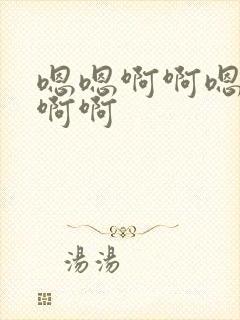 嗯嗯啊啊嗯
啊啊
湯湯